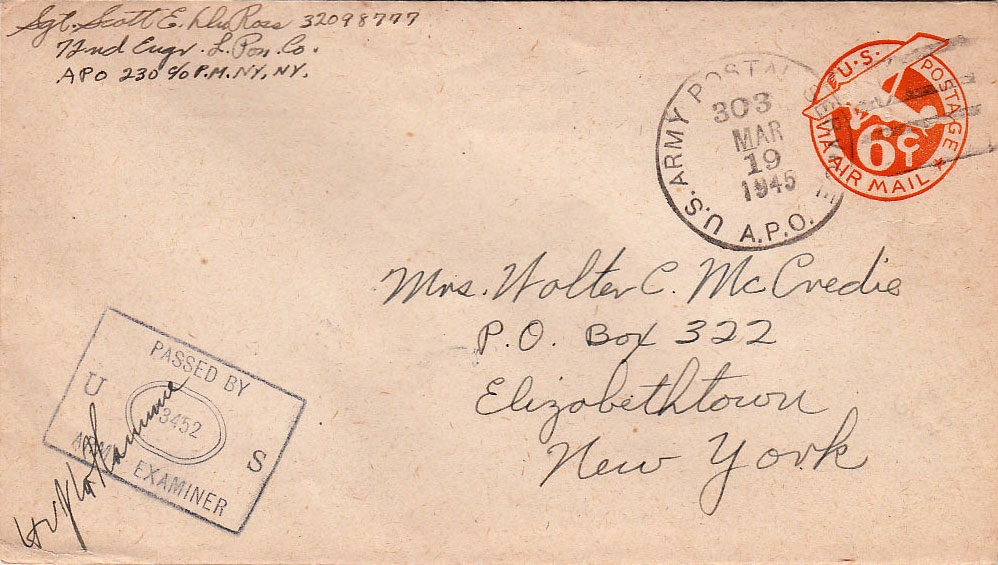 Sgt. Scott E. DuRoss 32098777
72nd Engr. L. Pon. Co.
APO 230 c/o P.M. NY, NY.
U.S. ARMY POSTAL SERVICE
A.P.O.
303
MAR
19
1945
U.S. POSTAGE
VIA AIR MAIL
6¢
Mrs. Walter C. McCredie
P.O. Box 322
Elizabethtown
New York
PASSED BY
U 3452 S
ARMY EXAMINER